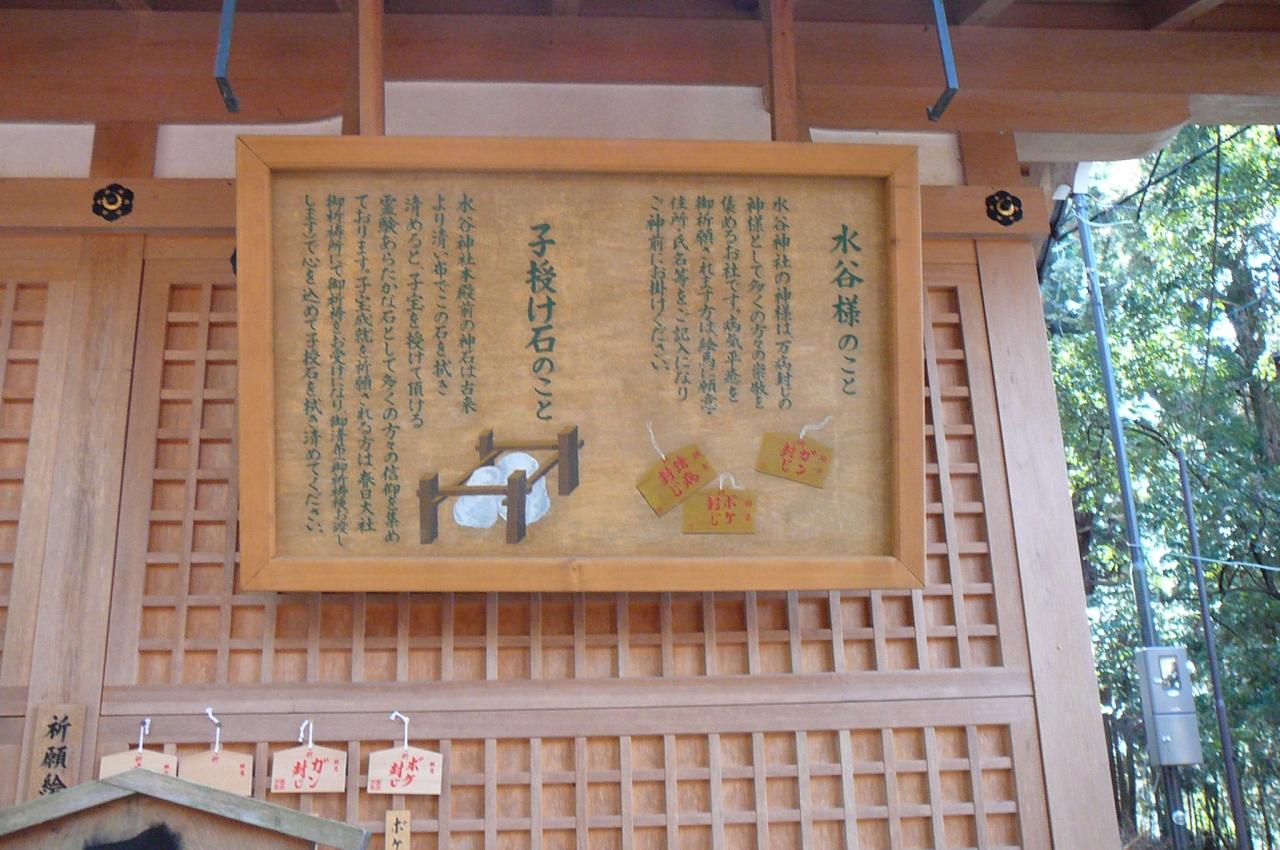 水谷様のこと
水谷神社の神様は万病封じの
神様として多くの方々の崇敬を
集めるお社です。病気平癒を
御祈願されます方は絵馬に願意・
住所・氏名等をご記入になり
ご神前にお掛けください。
ガン封じ
諸病封じ
ボケ封じ
子授け石のこと
水谷神社本殿前の神石は古来
より清い布でこの石を拭き
清めると子宝を授けて頂ける
霊験あらたかな石として多くの方々の信仰を集め
ております。子宝成就を祈願される方は、春日大社
御祈祷所にて御祈祷をお受けになり御清布(御祈祷後お渡し
します)で心を込めて子授石を拭き清めてください。
祈願絵
ガン封じ
ボケ封じ
ボケ